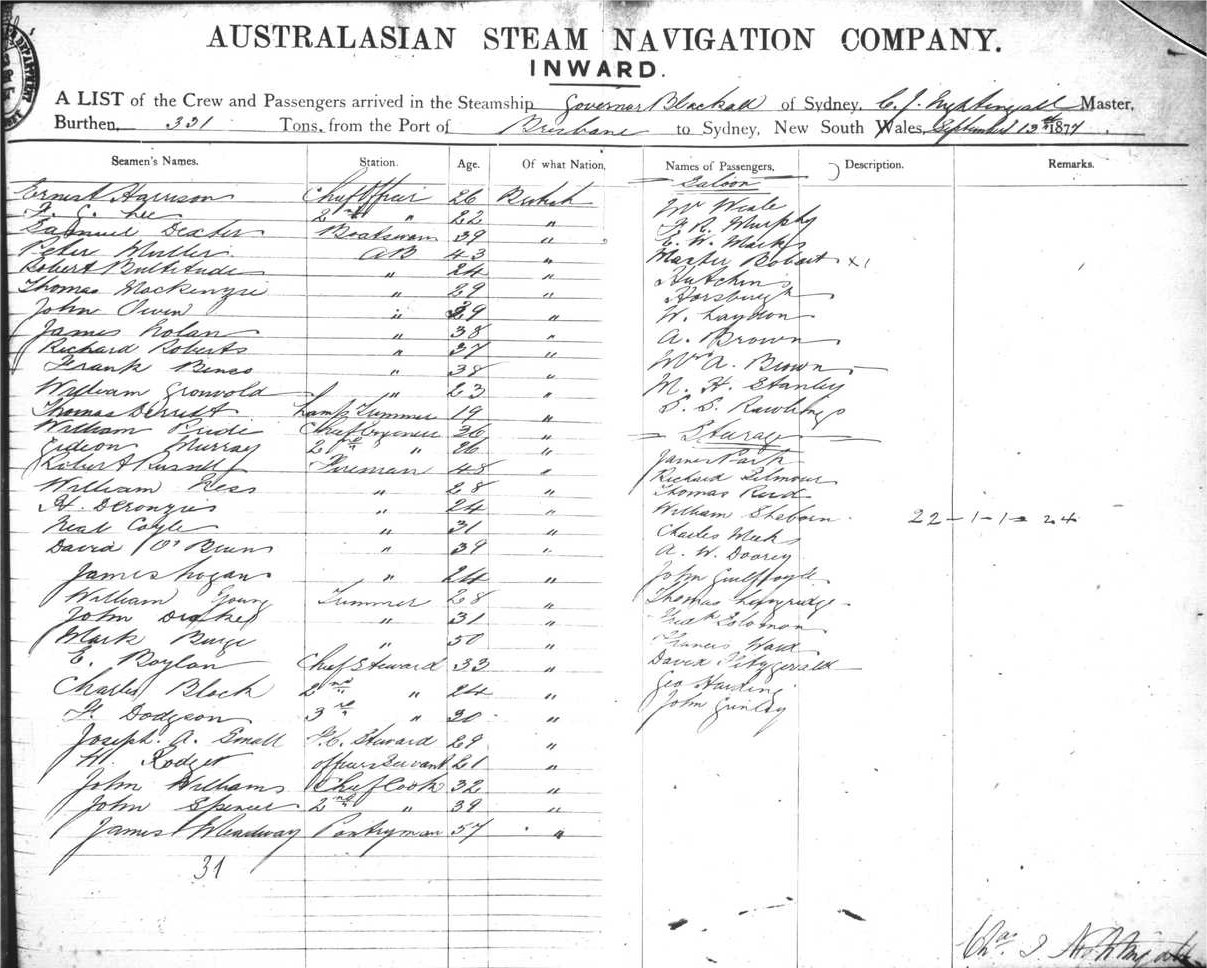 AUSTRALASIAN STEAM NAVIGATION COMPANY.
INWARD.
A LIST of the Crew and Passengers arrived in the Steamship Governor Blackall of Sydney, C. J. Nightingale Master,
Burthen, 331 Tons, from the Port of Brisbane to Sydney, New South Wales, September 13th 1877
Seamen's Names. Station. Age. Of what Nation, Names of Passengers, Description. Remarks.
Saloon
Ernest Harrison Chief Officer 26 British
F. C. Lee 2nd " 22 "
Samuel Dexter Boatswain 39 "
Peter Muller AB 43 "
Robert Bultitude " 24 "
Thomas Mackenzie " 29 "
John Owen " 39 "
James Nolan " 38 "
Richard Roberts " 37 "
Frank " 38 "
William Gronvold " 23 "
Thomas Lamp Trimmer 19 "
William Pride Chief Engineer 36 "
Gideon Murray 2nd " 26 "
Robert Russell Fireman 48 "
William Hess " 28 "
H. " 24 "
Neal Coyle " 31 "
David O'Brien " 39 "
James Logan " 24 "
William Young Trimmer 28 "
John Drake " 31 "
Mark " 50 "
E. Boylan Chief Steward 33 "
Charles Black 2nd " 24 "
F. Dodgson 3rd " 30 "
Joseph. A. Small F.C. Steward 29 "
H. Rodger officers Servant 21 "
John Williams Chief Cook 32 "
John Spencer 2nd " 39 "
James Meadway Pantryman 57 "
31
Mr Weale
J. R. Murphy
E. W. Marks
Master Bobart x1
Hutchins
Horsburgh
W. Laydon
A. Brown
A. Brown
M. H. Stanley
S. S. Rawlings
Sturage
James Park
Richard Gilmour
Thomas Reid
William Sheborn 22-1-1= 24
Charles Meeks
A. W. Doorey
John Guilfoyle
Thomas Longridge
Fredk Solomon
Francis Ward
David Fitzgerald
Geo Harding
John Grinley
Chas. J. Nightingale